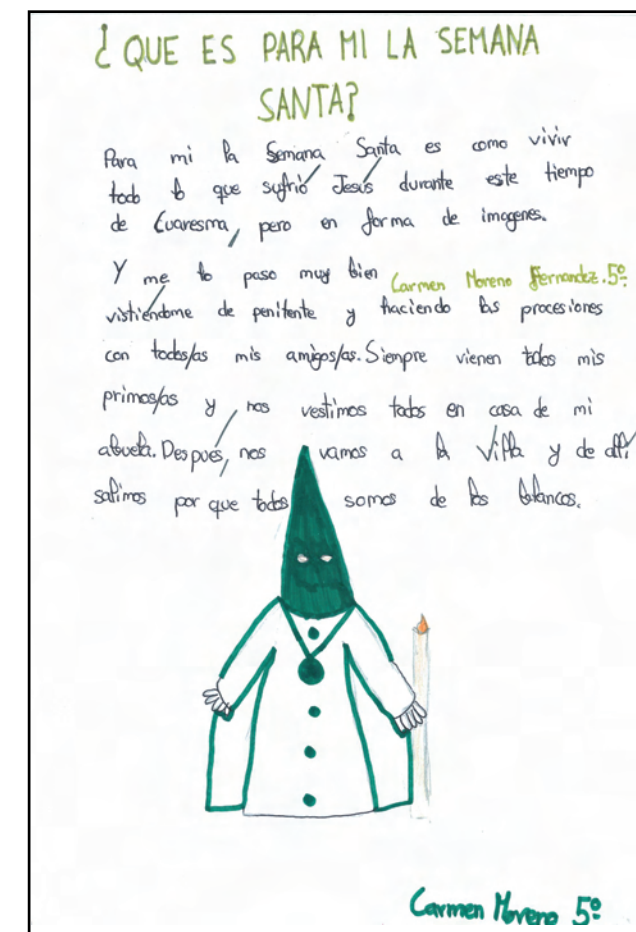 ¿QUE ES PARA MI LA SEMANA
SANTA?
Para mi la Semana Santa es como vivir
todo lo que sufrió Jesús durante este tiempo
de Cuaresma, pero en forma de imagenes.
Y me lo paso muy bien Carmen Moreno Fernandez.5º
vistiéndome de penitente y haciendo las procesiones
con todos/as mis amigos/as. Siempre vienen todos mis
primos/as y, nos vestimos todos en casa de mi
abuela. Después, nos vamos a la Villa y de allí
salimos por que todos somos de los blancos.
Carmen Moreno 5º